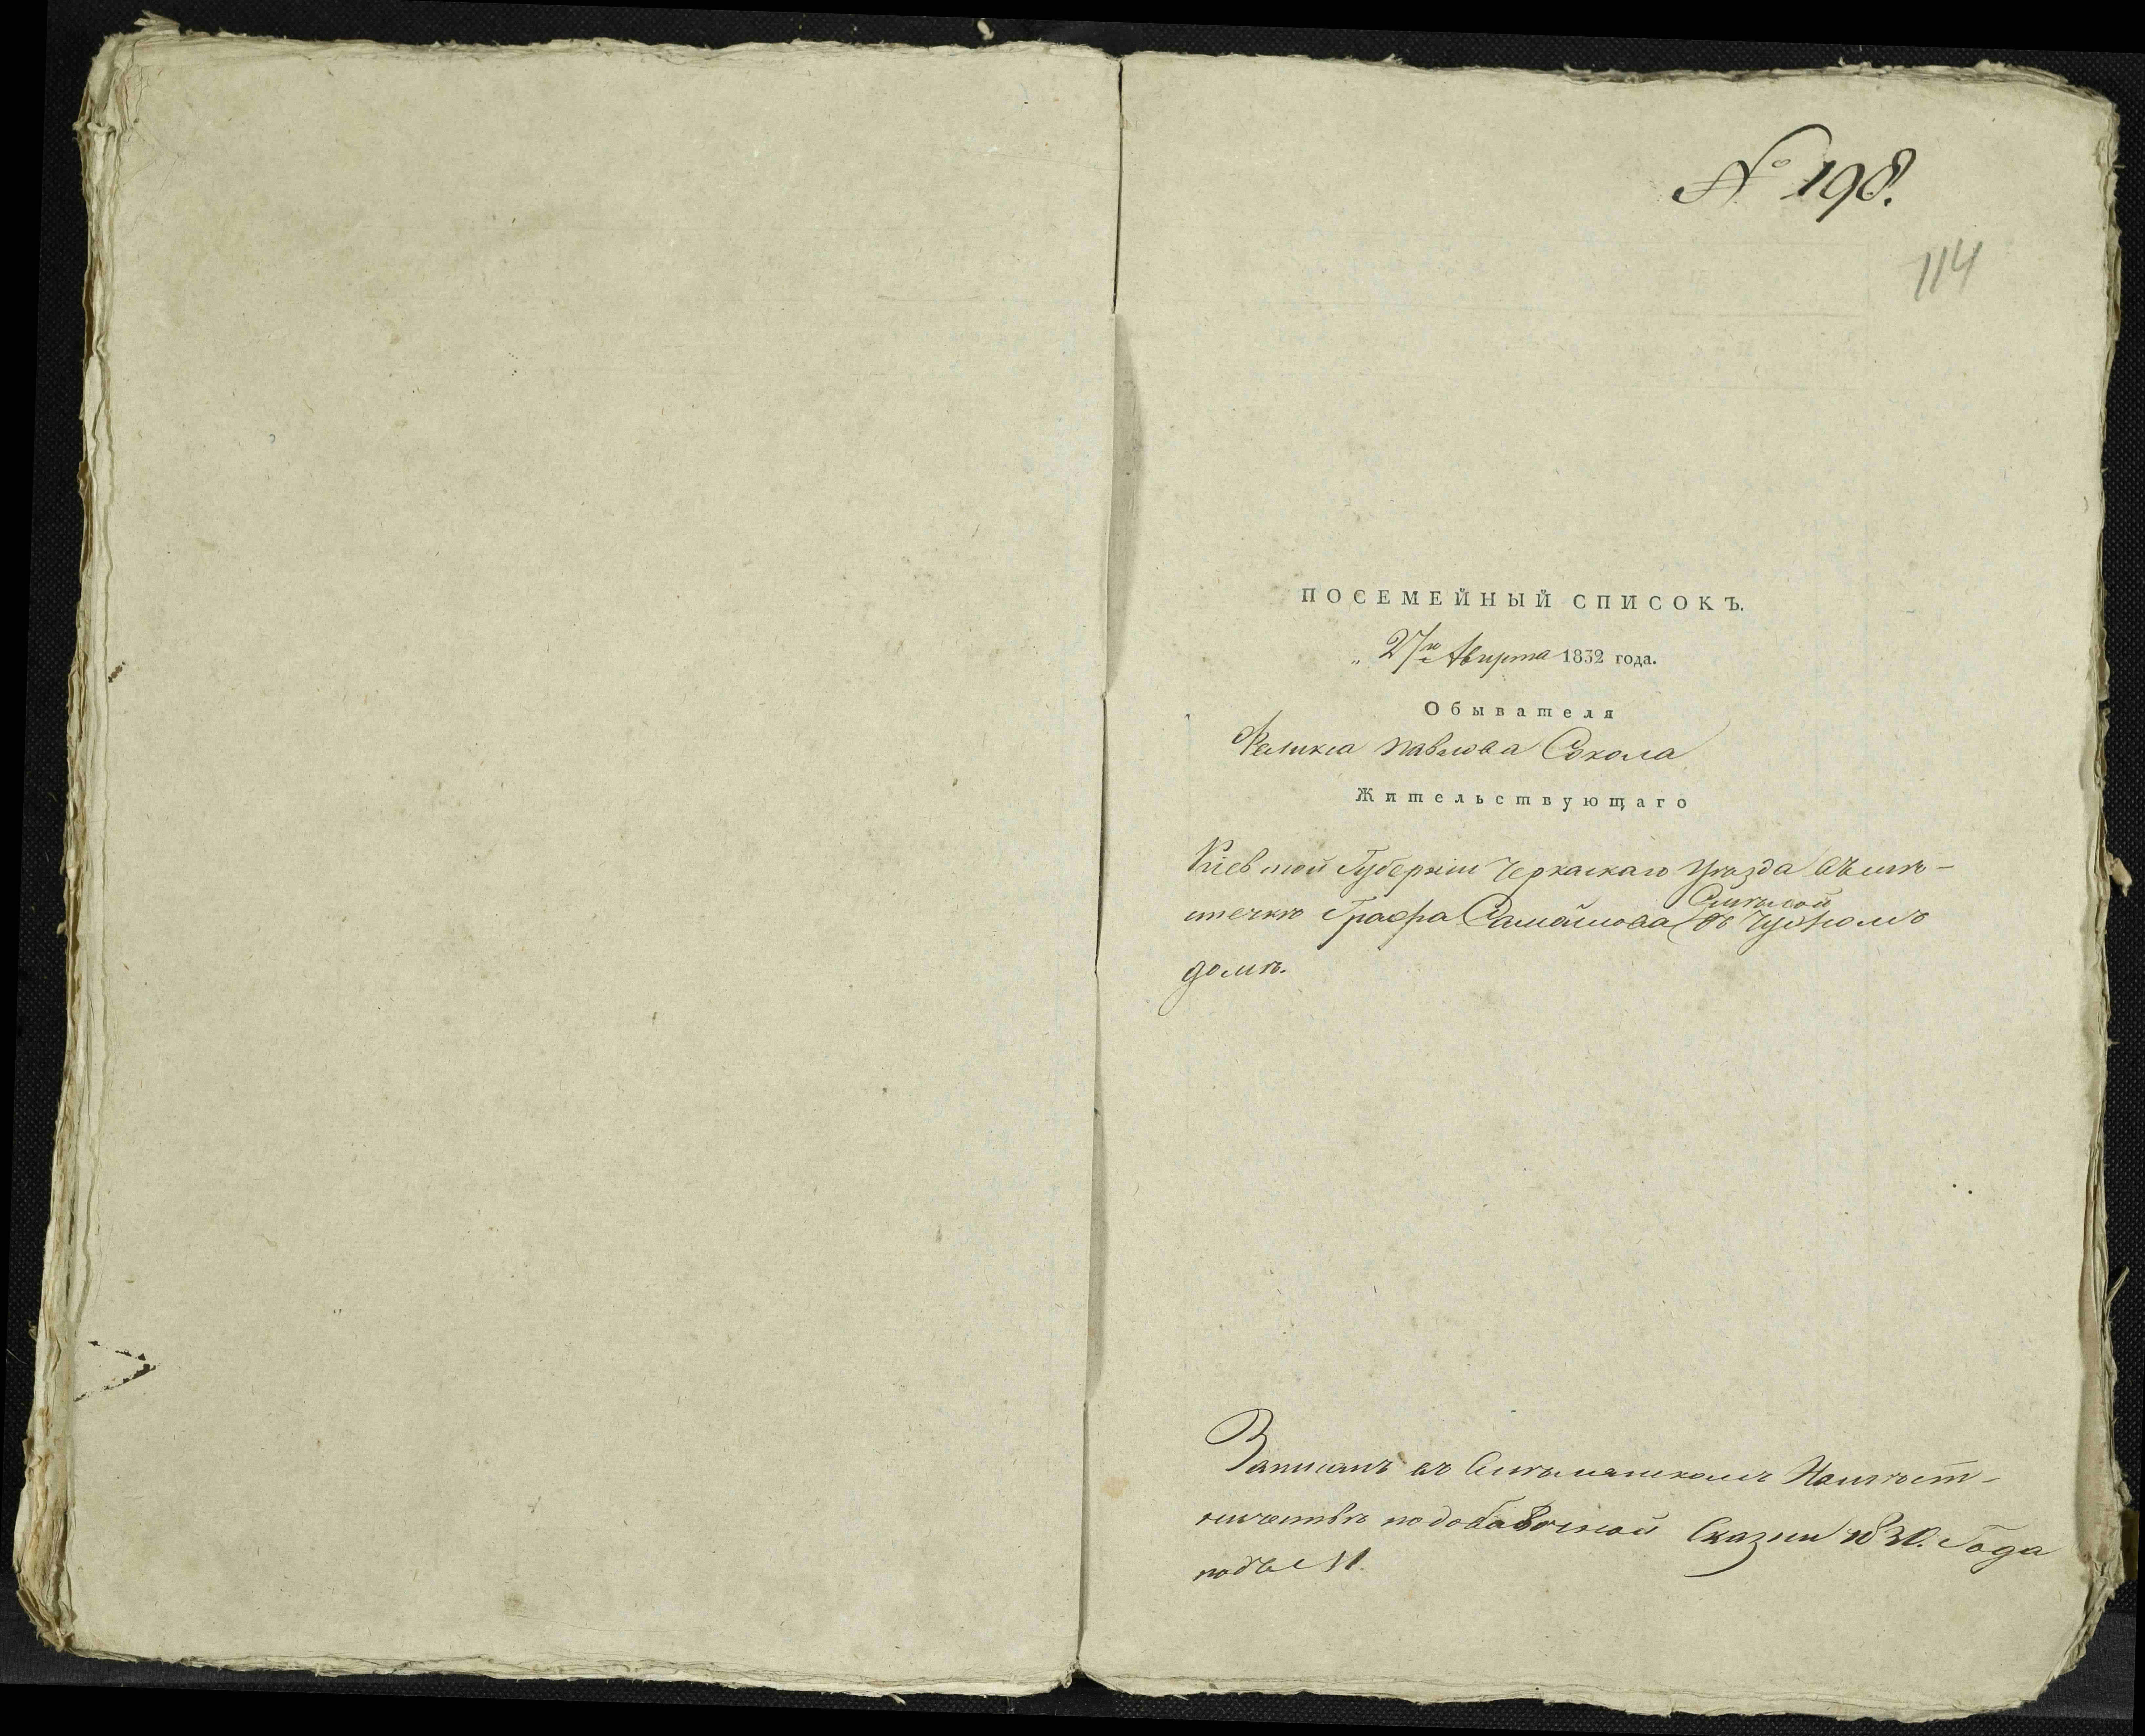 № 198.
114
ПОСЕМЕЙНЫЙ СПИСОКЪ.
„ 27го Августа 1832 года.
Обывателя
Феликса Павлова Сокола
Жительствующаго
Кіевской Губерніи Черкаскаго Уѣзда въ мѣ-
Смѣлой
стечкѣ Графа Самойлова въ Чужомъ
домѣ.
Записанъ въ Смѣлянскомъ Намѣст-
ничествѣ по добавочной Сказки Года
подъ №